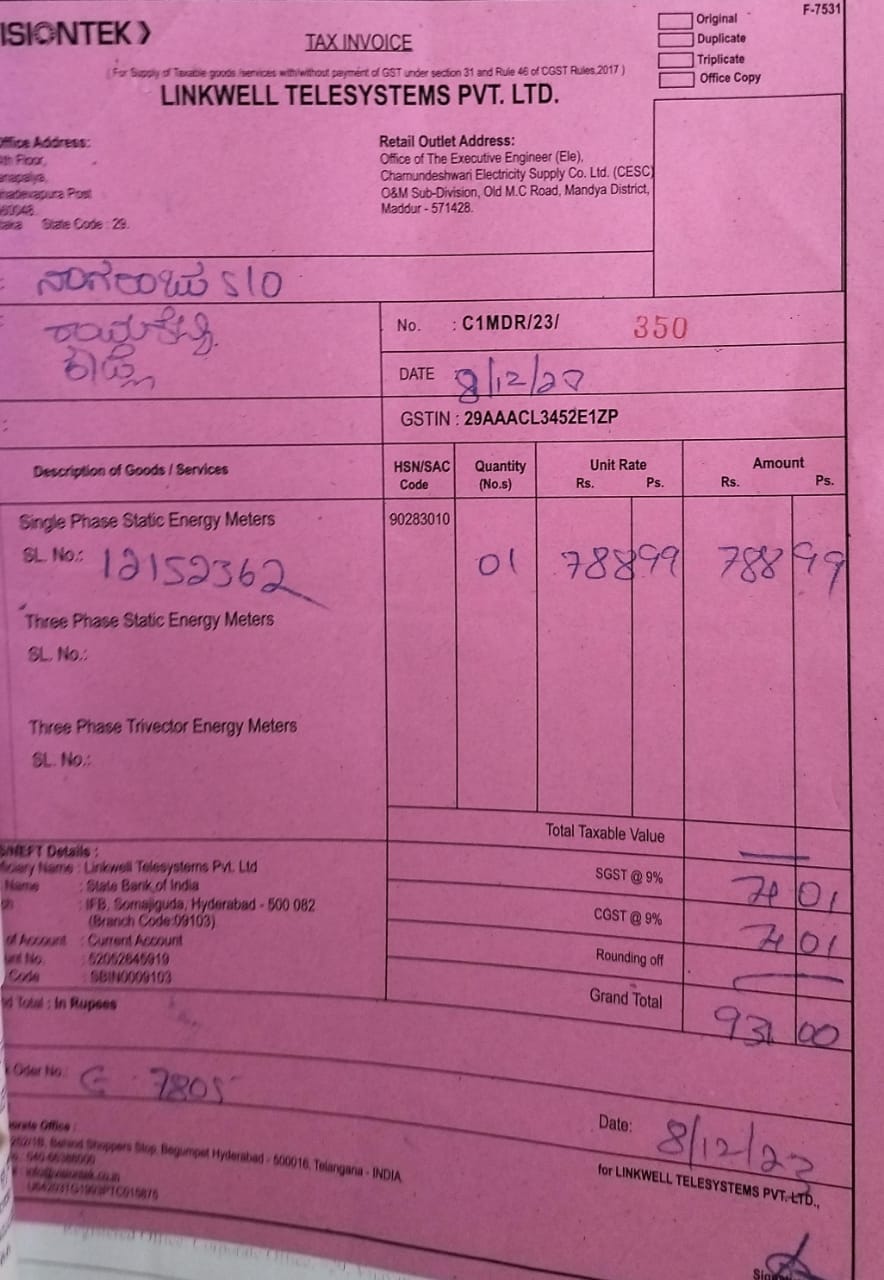 ISIONTEK
F-7531
TAX INVOICE
Original
Duplicate
Triplicate
Office Copy
( For Supply of Taxable goods /services with/without payment of GST under section 31 and Rule 46 of CGST Rules,2017 )
LINKWELL TELESYSTEMS PVT. LTD.
ffice Address:
4th Floor,
Post
State Code : 29.
Retail Outlet Address:
Office of The Executive Engineer (Ele),
Chamundeshwari Electricity Supply Co. Ltd. (CESC)
O&M Sub-Division, Old M.C Road, Mandya District,
Maddur - 571428.
S/O
No. : C1MDR/23/ 350
DATE 8/12/23
GSTIN : 29AAACL3452E1ZP
Description of Goods / Services
HSN/SAC Code
Quantity (No.s)
Unit Rate Rs. Ps.
Amount Rs. Ps.
Single Phase Static Energy Meters 90283010
SL. No.: 12152362 01 788 99 788 99
Three Phase Static Energy Meters
SL. No.:
Three Phase Trivector Energy Meters
SL. No.:
Total Taxable Value
SGST @ 9% 71 01
CGST @ 9% 71 01
Rounding off
Grand Total 931 00
/NEFT Details :
ficiary Name : Linkwell Telesystems Pvt. Ltd
Name : State Bank of India
: IFB, Somajiguda, Hyderabad - 500 082
(Branch Code:09103)
of Account : Current Account
unt No. : 52052645919
Code : SBIN0009103
d Total : In Rupees
Oder No.: 7805
Date: 8/12/23
for LINKWELL TELESYSTEMS PVT. LTD.,
orate Office :
Behind Shoppers Stop, Begumpet Hyderabad - 500016, Telangana - INDIA
info@visiontek.co.in